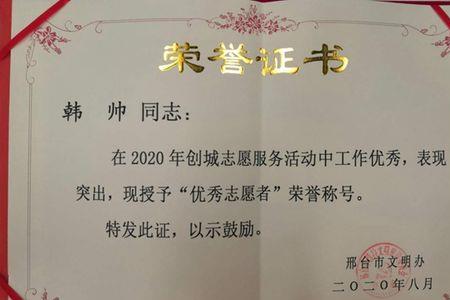 荣誉证书
韩 帅 同志：
在2020年创城志愿服务活动中工作优秀，表现
突出，现授予“优秀志愿者”荣誉称号。
特发此证，以示鼓励。
邢台市文明办
二〇二〇年八月